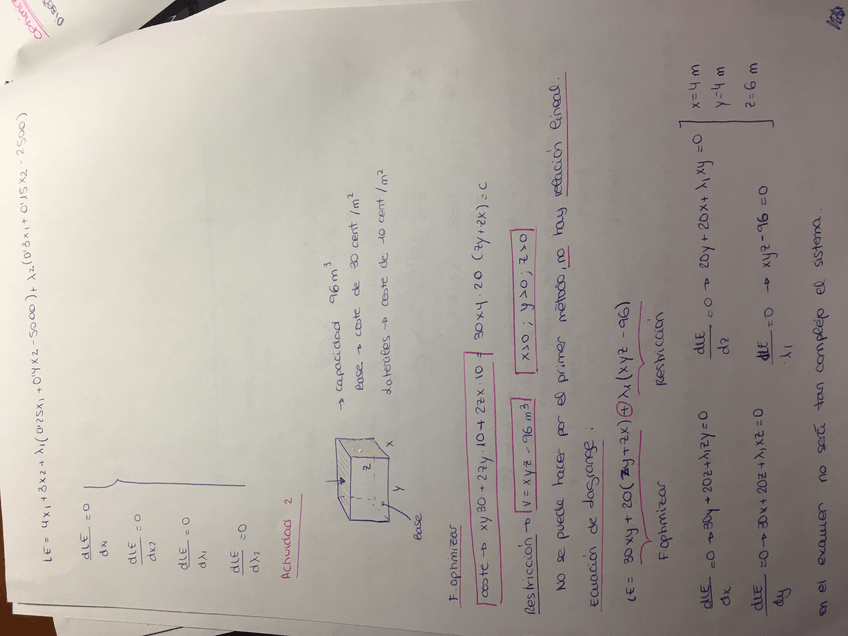 LE = 4x₁ + 3x₂ + λ₁(0'25x₁ + 0'4x₂ - 5000) + λ₂(0'3x₁ + 0'15x₂ - 2500)
dLE/dx₁ = 0
dLE/dx₂ = 0
dLE/dλ₁ = 0
dLE/dλ₂ = 0
Actividad 2
→ capacidad 96 m³
Base → coste de 30 cent/m²
Laterales → coste de 10 cent/m²
z
x
y
Base
F. optimizar
coste → xy30 + 2zy·10 + 2zx·10 = 30xy·20 (zy+zx) = C
Restricción → V = xyz - 96 m³ x>0; y>0; z>0
No se puede hacer por el primer método, no hay relación lineal.
Ecuación de Lagrange:
LE = 30xy + 20(zy+zx) + λ₁(xyz - 96)
F optimizar Restricción
dLE/dx = 0 → 30y + 20z + λ₁zy = 0 dLE/dz = 0 → 20y + 20x + λ₁xy = 0 x = 4 m
y = 4 m
dLE/dy = 0 → 30x + 20z + λ₁xz = 0 dLE/λ₁ = 0 → xyz - 96 = 0 z = 6 m
en el examen no será tan complejo el sistema.